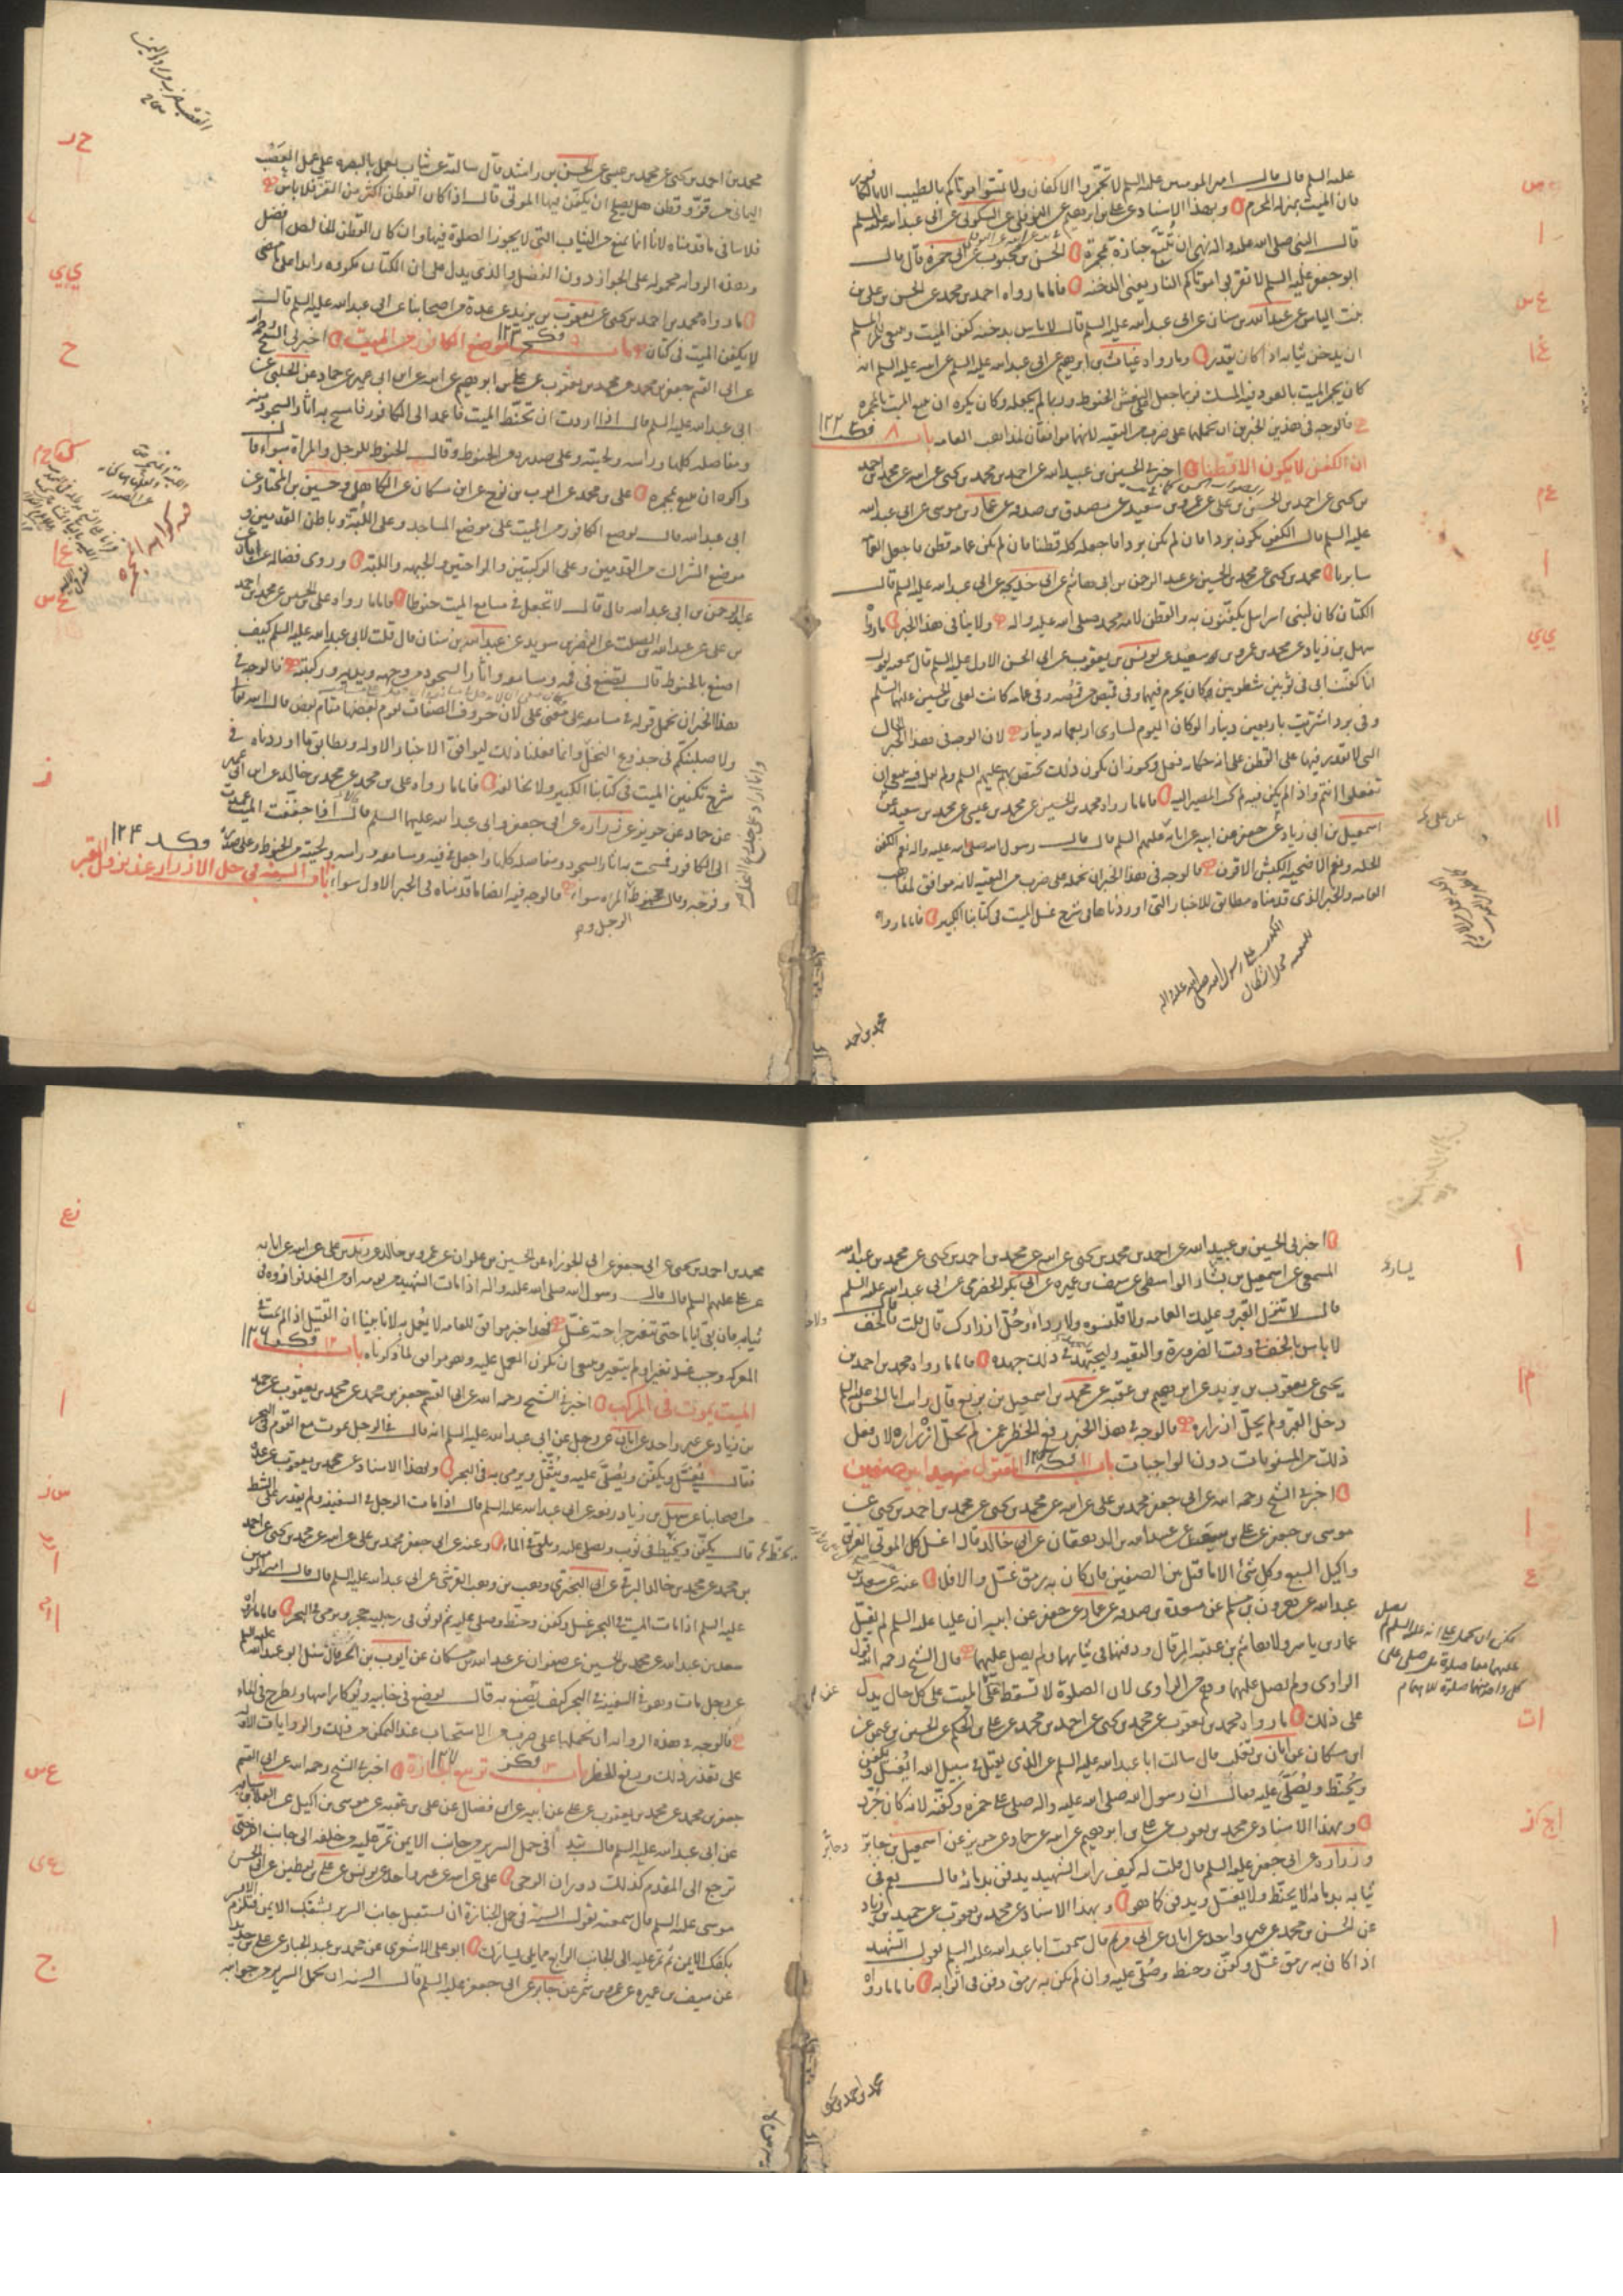 عليه السلم قال قال امير المومنين عليه السلم لا تجمروا الاكفان ولا تمسوا موتاكم بالطيب الا الكافور
فان الميت بمنزله المحرم وبهذا الاسناد عن علي بن ابرهيم عن النوفلي عن السكوني عن ابي عبدالله عليه السلم
قال النبي صلى الله عليه واله نهى ان تتبع جنازة بمجمرة الحسن بن محبوب عن ابي حمزه قال قال
ابو جعفر عليه السلم لا تقربوا موتاكم النار يعني الدخنه فاما ما رواه احمد بن محمد عن الحسن بن علي بن
بنت الياس عن عبدالله بن سنان عن ابي عبدالله عليه السلم قال لا باس بدخنه كفن الميت وينبغي للمرء المسلم
ان يدخن ثيابه اذا كان يقدر وما رواه غياث بن ابرهيم عن ابي عبدالله عليه السلم عن ابيه عليه السلم انه
كان يجمر الميت بالعود فيه المسك وربما جعل على النعش الحنوط وربما لم يجعله وكان يكره ان يتبع الميت بالمجمره
فالوجه في هذين الخبرين ان نحملها على ضرب من التقيه لانهما موافقان لمذاهب العامه باب ٨ ١٢٢
ان الكفن لا يكون الا قطنا اخبرني الحسين بن عبيدالله عن احمد بن محمد بن يحيى عن ابيه عن محمد بن احمد
بن يحيى عن احمد بن الحسن بن علي عن عمرو بن سعيد عن مصدق بن صدقه عن عمار بن موسى عن ابي عبدالله
عليه السلم قال الكفن يكون بردا فان لم يكن بردا فاجعله كله قطنا فان لم يكن عمامه قطن فاجعل العمامه
سابريا محمد بن يحيى عن محمد بن الحسين عن عبد الرحمن بن ابي هاشم عن ابي خديجه عن ابي عبدالله عليه السلم قال
الكتان كان لبني اسرائيل يكفنون به والقطن لامه محمد صلى الله عليه واله ولا ينافي هذا الخبر ما رواه
سهل بن زياد عن محمد بن عمرو بن سعيد عن يونس بن يعقوب عن ابي الحسن الاول عليه السلم قال سمعته يقول
انا كفنت ابي في ثوبين شطويين كان يحرم فيهما وفي قميص من قمصه وفي عمامه كانت لعلي بن الحسين عليهما السلم
وفي برد اشتريت باربعين دينار لو كان اليوم لساوى اربعمايه دينار لان الوجه في هذا الخبر الحال
التي لا يقدر فيها على القطن على انه حكايه فعل ويجوز ان يكون ذلك يختص بهم عليهم السلم ولم يقل فيه ينبغي ان
تفعلوا انتم واذا لم يكن فيه لم يجب المصير اليه فاما ما رواه محمد بن الحسين عن محمد بن عيسى عن محمد بن سعيد عن
اسمعيل بن ابي زياد عن جعفر عن ابيه عن ابائه عليهم السلم قال قال رسول الله صلى الله عليه واله نعم الكفن
الحله ونعم الاضحيه الكبش الاقرن فالوجه في هذا الخبر ان نحمله على ضرب من التقيه لانه موافق لمذاهب
العامه والخبر الذي قدمناه مطابق للاخبار التي اوردناها في شرح غسل الميت في كتابنا الكبير فاما ما رواه
محمد بن احمد
محمد بن احمد بن يحيى عن محمد بن عيسى عن الحسن بن راشد قال سالته عن ثياب تعمل بالبصره على عمل العصب
اليماني من قز وقطن هل يصلح ان يكفن فيها الموتى قال اذا كان القطن اكثر من القز فلا باس
فلا ينافي ما قدمناه لانا انما نمنع من الثياب التي لا يجوز الصلوة فيها وان كان القطن الخالص افضل
وهذه الروايه محموله على الجواز دون الفضل والذي يدل على ان الكتان مكروه زايدا على ما مضى
ما رواه محمد بن احمد بن يحيى عن يعقوب بن يزيد عن عدة من اصحابنا عن ابي عبدالله عليه السلم قال
لا يكفن الميت في كتان باب ٩ ١٢٣ موضع الكافور من الميت اخبرني الشيخ رحمه الله
عن ابي القسم جعفر بن محمد عن محمد بن يعقوب عن علي بن ابرهيم عن ابيه عن ابن ابي عمير عن حماد عن الحلبي عن
ابي عبدالله عليه السلم قال اذا اردت ان تحنط الميت فاعمد الى الكافور فامسح به اثار السجود منه
ومفاصله كلها وراسه ولحيته وعلى صدره من الحنوط وقال الحنوط للرجل والمراة سواء قال
واكره ان يتبع بمجمره علي بن محمد عن ايوب بن نوح عن ابن مسكان عن الكاهلي وحسين بن المختار عن
ابي عبدالله قال يوضع الكافور من الميت على موضع المساجد وعلى اللبة وباطن القدمين و
موضع الشراك من القدمين وعلى الركبتين والراحتين والجبهه واللبة وروى فضاله عن ابان عن
عبدالرحمن بن ابي عبدالله قال قال لا تجعل في مسامع الميت حنوطا فاما ما رواه علي بن الحسين عن محمد بن احمد
بن علي عن عبدالله بن الصلت عن النضر بن سويد عن عبدالله بن سنان قال قلت لابي عبدالله عليه السلم كيف
اصنع بالحنوط قال تضع في فمه ومسامعه واثار السجود من وجهه ويديه وركبتيه فالوجه في
هذا الخبر ان نحمل قوله في مسامعه على معنى على لان حروف الصفات تقوم بعضها مقام بعض قال الله تعالى
ولاصلبنكم في جذوع النخل وانما فعلنا ذلك ليوافق الاخبار الاوله ويطابق ما اوردناه في
شرح تكفين الميت في كتابنا الكبير ولا تخالفه فاما ما رواه علي بن محمد عن محمد بن خالد عن ابن ابي عمير
عن حماد عن حريز عن زراره عن ابي جعفر وابي عبدالله عليهما السلم قال اذا جففت الميت عمدت
الى الكافور فمسحت به اثار السجود ومفاصله كلها واجعل في فيه ومسامعه وراسه ولحيته من الحنوط وعلى صدره
وفرجه وقال حنوط المراه سواء فالوجه فيه ايضا ما قدمناه في الخبر الاول سواء باب السنة في حل الازرار عند نزول القبر ١٢٤
الرجل و
اخبرني الحسين بن عبيدالله عن احمد بن محمد بن يحيى عن ابيه عن محمد بن احمد بن يحيى عن محمد بن عبدالله
المسمعي عن اسمعيل بن بشار الواسطي عن سيف بن عميره عن ابي بكر الحضرمي عن ابي عبدالله عليه السلم
قال لا تنزل القبر وعليك العمامه ولا قلنسوه ولا رداء وحل ازرارك قال قلت فالخف قال
لا باس بالخف وقت الضرورة والتقيه وليجتهد في ذلك جهده فاما ما رواه محمد بن احمد بن
يحيى عن يعقوب بن يزيد عن ابرهيم بن عقبه عن محمد بن اسمعيل بن بزيع قال رايت ابا الحسن عليه السلم
دخل القبر ولم يحل ازراره فالوجه في هذا الخبر رفع الحظر عمن لم يحل ازراره لان فعل
ذلك من المسنونات دون الواجبات باب ١١ المقتول شهيدا بين صفين
اخبرني الشيخ رحمه الله عن ابي جعفر محمد بن علي عن ابيه عن محمد بن يحيى عن محمد بن احمد بن يحيى عن
موسى بن جعفر عن علي بن سعيد عن عبيدالله بن الدهقان عن ابي خالد قال اغسل كل الموتى الغريق
واكيل السبع وكل شئ الا ما قتل بين الصفين فان كان به رمق غسل والا فلا عنه عن سعد بن
عبدالله عن هرون بن مسلم عن مسعدة بن صدقه عن عمار عن جعفر عن ابيه ان عليا عليه السلم لم يغسل
عمار بن ياسر ولا هاشم بن عتبه المرقال ودفنهما في ثيابهما ولم يصل عليهما قال الشيخ رحمه الله قول
الراوي ولم يصل عليهما وهم من الراوي لان الصلوة لا تسقط على الميت على كل حال يدل
على ذلك ما رواه محمد بن يعقوب عن محمد بن يحيى عن احمد بن محمد عن علي بن الحكم عن الحسين بن عثمن عن
ابن مسكان عن ابان بن تغلب قال سالت ابا عبدالله عليه السلم عن الذي يقتل في سبيل الله ايغسل ويكفن
ويحنط ويصلى عليه فقال ان رسول الله صلى الله عليه واله صلى على حمزه وكفنه لانه كان جرد
وبهذا الاسناد عن محمد بن يعقوب عن علي بن ابرهيم عن ابيه عن حماد عن حريز عن اسمعيل بن جابر
وزراره عن ابي جعفر عليه السلم قال قلت له كيف رايت الشهيد يدفن بدمائه قال نعم في
ثيابه بدمائه لا يحنط ولا يغسل ويدفن كما هو وبهذا الاسناد عن محمد بن يعقوب عن حميد بن زياد
عن الحسن بن محمد عن غير واحد عن ابان عن ابي مريم قال سمعت ابا عبدالله عليه السلم يقول الشهيد
اذا كان به رمق غسل وكفن وحنط وصلى عليه وان لم يكن به رمق دفن في اثوابه فاما ما رواه
محمد بن احمد بن يحيى
محمد بن احمد بن يحيى عن ابي جعفر عن ابي الجوزاء عن الحسين بن علوان عن عمرو بن خالد عن زيد بن علي عن ابيه عن ابائه
عن علي عليهم السلم قال قال رسول الله صلى الله عليه واله اذا مات الشهيد من يومه او من الغد فواروه في
ثيابه فان بقي اياما حتى تتغير جراحته غسل فهذا خبر موافق للعامه لا يعمل به لانا بينا ان القتيل اذا لم يمت في
المعركه وجب غسله تغير او لم يتغير وينبغي ان يكون العمل عليه وهو موافق لما ذكرناه باب ١٢ ١٢٦
الميت يموت في المركب اخبرني الشيخ رحمه الله عن ابي القسم جعفر بن محمد عن محمد بن يعقوب عن حميد
بن زياد عن غير واحد عن ابان عن رجل عن ابي عبدالله عليه السلم انه قال في الرجل يموت مع القوم في البحر
فقال يغسل ويكفن ويصلى عليه ويثقل ويرمى به في البحر وبهذا الاسناد عن محمد بن يعقوب عن عدة
من اصحابنا عن سهل بن زياد رفعه عن ابي عبدالله عليه السلم قال اذا مات الرجل في السفينه ولم يقدر على الشط
قال يكفن ويحنط في ثوب ويصلى عليه ويلقى في الماء وعنه عن ابي جعفر محمد بن علي عن ابيه عن محمد بن يحيى عن احمد
بن محمد عن محمد بن خالد البرقي عن ابي البختري وهب بن وهب القرشي عن ابي عبدالله عليه السلم قال قال امير المومنين
عليه السلم اذا مات الميت في البحر غسل وكفن وحنط وصلى عليه ثم يوثق في رجليه حجر ويرمى في البحر فاما ما رواه
سعد بن عبدالله عن محمد بن الحسين عن صفوان عن عبدالله بن مسكان عن ايوب بن الحر قال سئل ابو عبدالله عليه السلم
عن رجل مات وهو في السفينة في البحر كيف يصنع به قال يوضع في خابيه ويوكا راسها ويطرح في الماء
فالوجه في هذه الروايه ان نحملها على ضرب من الاستحباب عند التمكن من ذلك والروايات الاوله
على تعذر ذلك ورفع الحظر باب ١٣ ١٢٧ تربيع الجنازة اخبرني الشيخ رحمه الله عن ابي القسم
جعفر بن محمد عن محمد بن يعقوب عن علي عن ابيه عن ابن فضال عن علي بن عقبه عن موسى بن اكيل عن العلاء بن سيابه
عن ابي عبدالله عليه السلم قال تبدا في حمل السرير من جانب الايمن ثم تمر عليه من خلفه الى جانب الاخر حتى
ترجع الى المقدم كذلك دوران الرحى علي عن ابيه عن غير واحد عن يونس عن علي بن يقطين عن ابي الحسن
موسى عليه السلم قال سمعته يقول السنة في حمل الجنازة ان تستقبل جانب السرير بشقك الايمن فتلزم الايسر
بكفك الايمن ثم تمر عليه الى الجانب الرابع مما يلي يسارك ابو علي الاشعري عن محمد بن عبد الجبار عن علي بن حديد
عن سيف بن عميره عن عمرو بن شمر عن جابر عن ابي جعفر عليه السلم قال السنه ان تحمل السرير من جوانبه